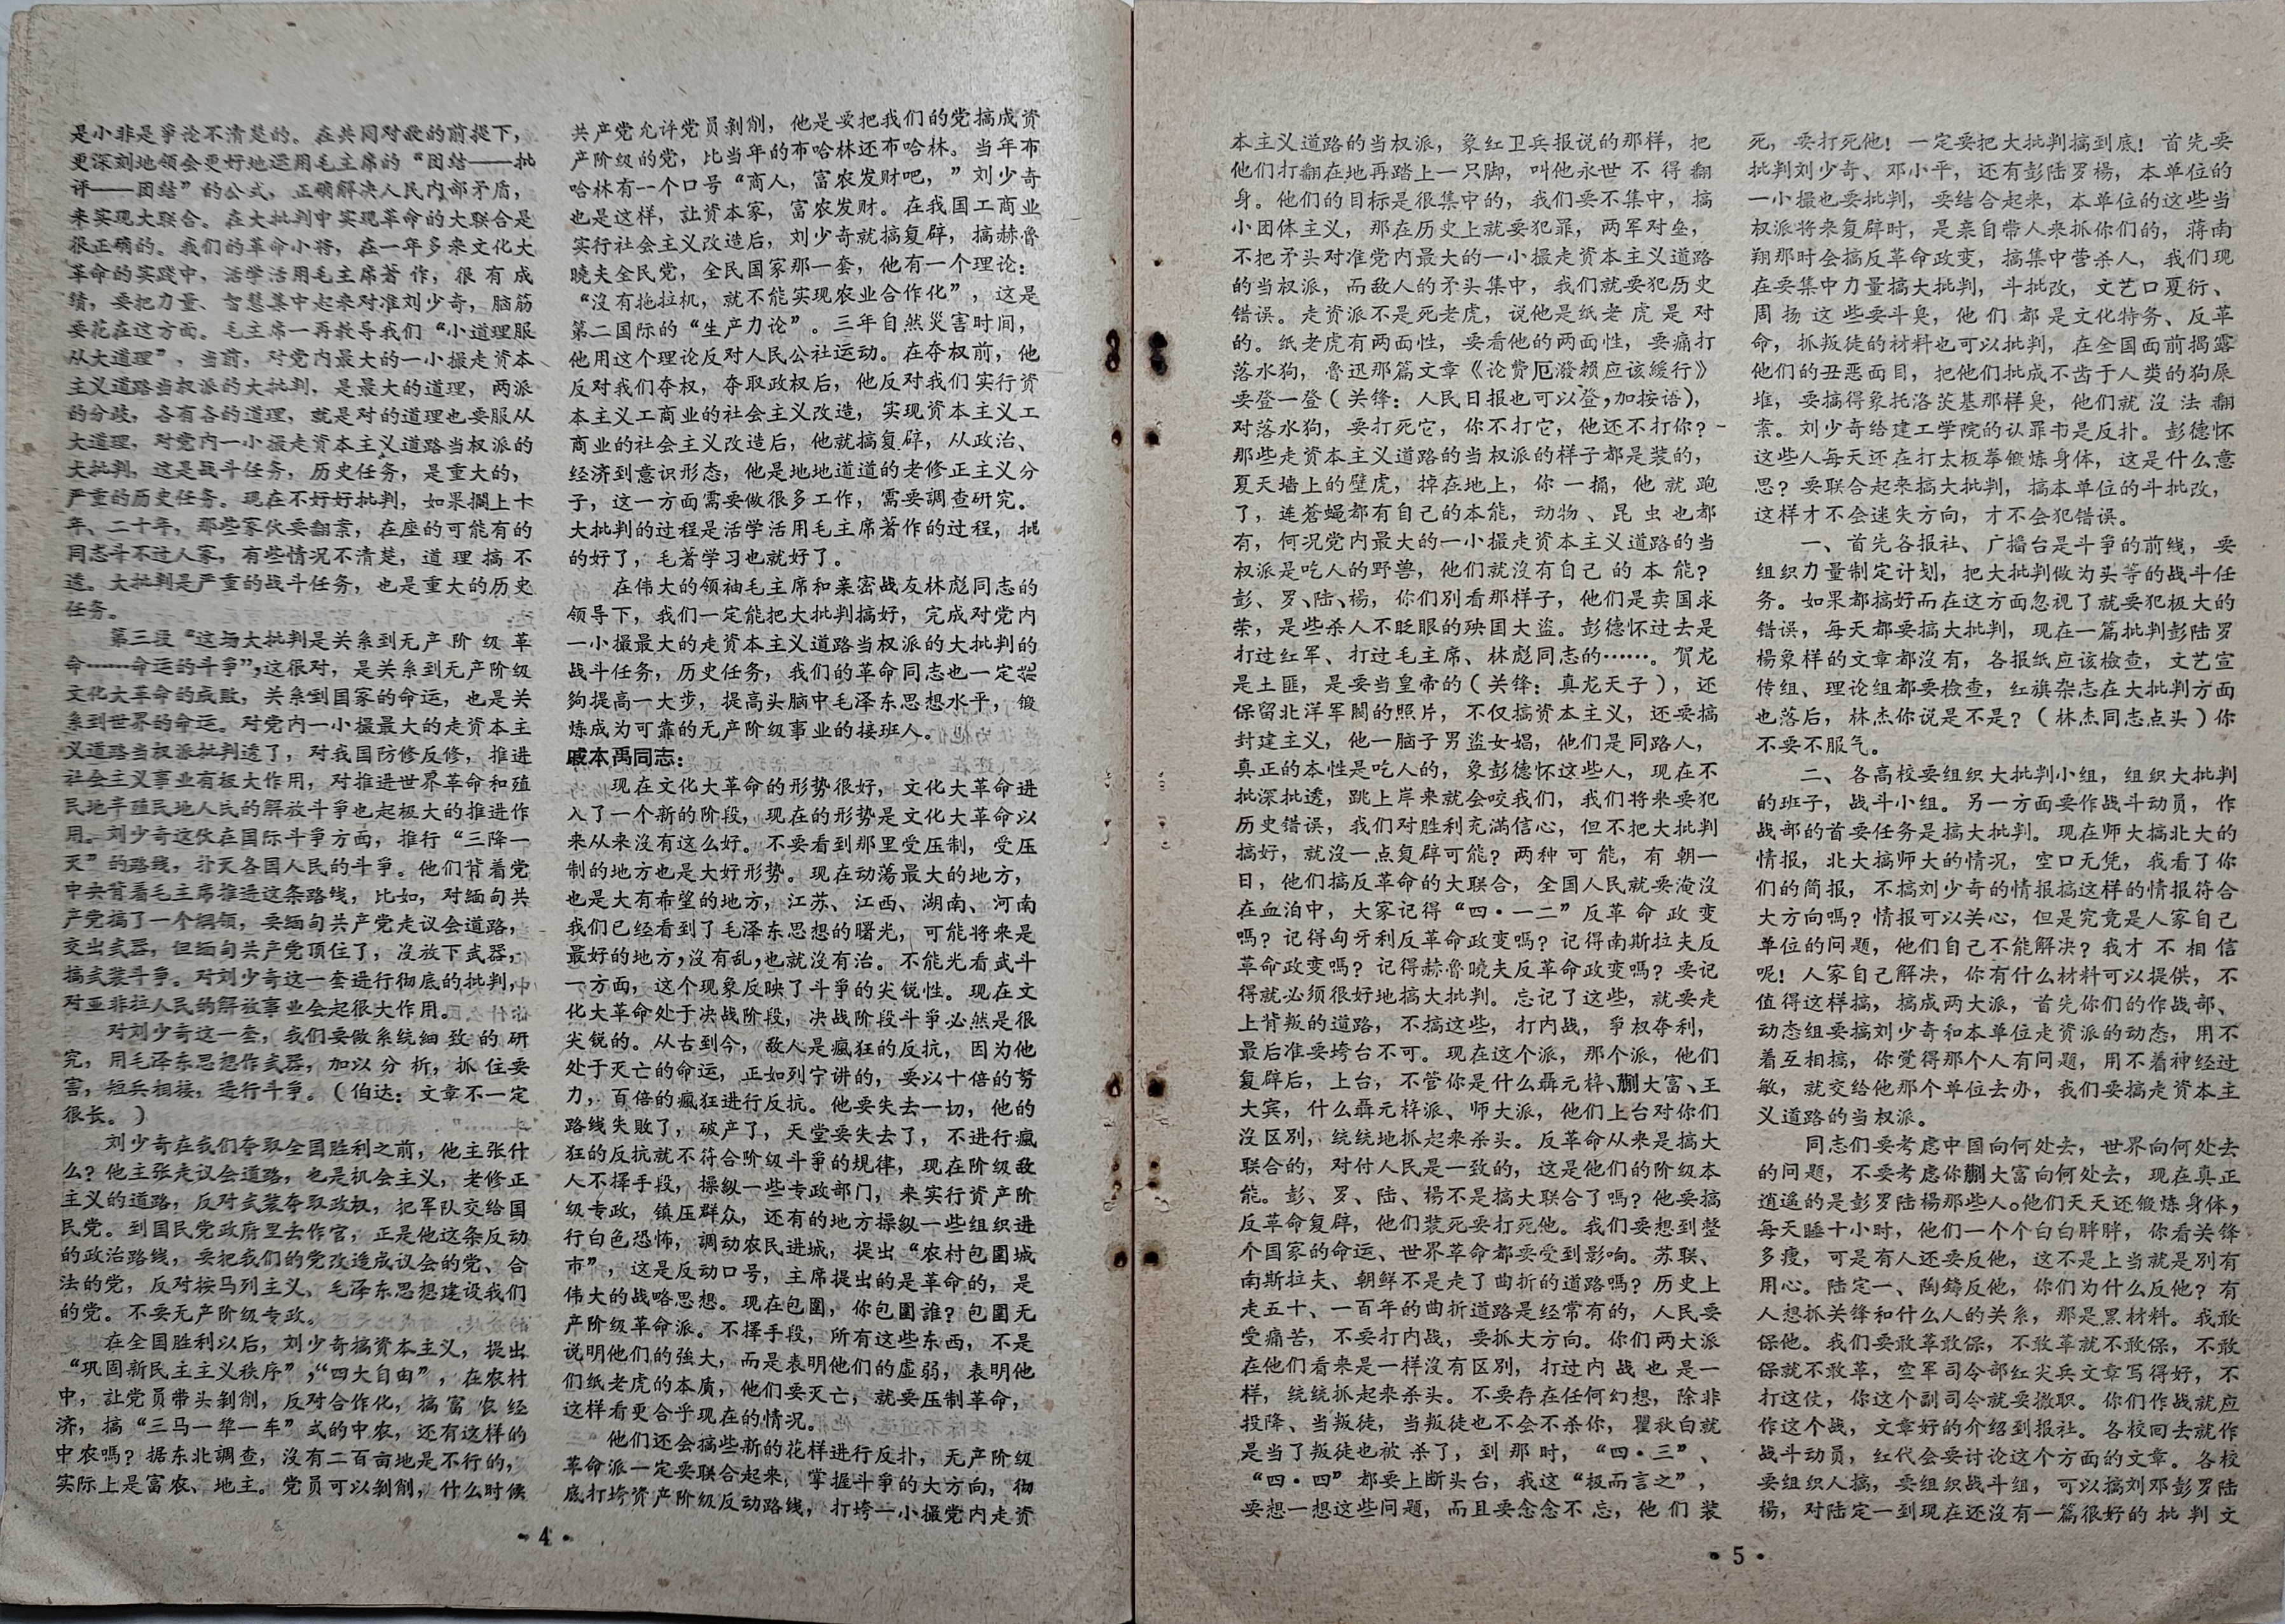 是小非是爭论不清楚的。在共同对敌的前提下，
更深刻地领会更好地运用毛主席的“团结——批
评——团结”的公式，正确解决人民内部矛盾，
来实现大联合。在大批判中实现革命的大联合是
很正确的。我们的革命小将，在一年多来文化大
革命的实践中，活学活用毛主席著作，很有成
绩，要把力量、智慧集中起来对准刘少奇，脑筋
要花在这方面。毛主席一再教导我们“小道理服
从大道理”，当前，对党内最大的一小撮走资本
主义道路当权派的大批判，是最大的道理，两派
的分歧，各有各的道理，就是对的道理也要服从
大道理，对党内一小撮走资本主义道路当权派的
大批判，这是战斗任务，历史任务，是重大的，
严重的历史任务。现在不好好批判，如果搁上十
年、二十年，那些家伙要翻案，在座的可能有的
同志斗不过人家，有些情况不清楚，道理搞不
透。大批判是严重的战斗任务，也是重大的历史
任务。
第三段“这场大批判是关系到无产阶级革
命……命运的斗爭”，这很对，是关系到无产阶级
文化大革命的成败，关系到国家的命运，也是关
系到世界的命运。对党内一小撮最大的走资本主
义道路当权派批判透了，对我国防修反修，推进
社会主义事业有极大作用，对推进世界革命和殖
民地半殖民地人民的解放斗爭也起极大的推进作
用。刘少奇这伙在国际斗爭方面，推行“三降一
灭”的路线，扑灭各国人民的斗爭。他们背着党
中央背着毛主席推进这条路线，比如，对缅甸共
产党搞了一个纲领，要缅甸共产党走议会道路，
交出武器，但缅甸共产党顶住了，沒放下武器，
搞武装斗爭。对刘少奇这一套进行彻底的批判，
对亚非拉人民的解放事业会起很大作用。
对刘少奇这一套，我们要做系统细致的研
究，用毛泽东思想作武器，加以分析，抓住要
害，短兵相接，进行斗爭。（伯达：文章不一定
很长。）
刘少奇在我们夺取全国胜利之前，他主张什
么？他主张走议会道路，也是机会主义，老修正
主义的道路，反对武装夺取政权，把军队交给国
民党。到国民党政府里去作官，正是他这条反动
的政治路线，要把我们的党改造成议会的党、合
法的党，反对按马列主义、毛泽东思想建设我们
的党。不要无产阶级专政。
在全国胜利以后，刘少奇搞资本主义，提出
“巩固新民主主义秩序”；“四大自由”，在农村
中，让党员带头剝削，反对合作化，搞富农经
济，搞“三马一犂一车”式的中农，还有这样的
中农嗎？据东北調查，沒有二百亩地是不行的，
实际上是富农、地主。党员可以剝削，什么时候
共产党允许党员剝削，他是要把我们的党搞成资
产阶级的党，比当年的布哈林还布哈林。当年布
哈林有一个口号“商人，富农发财吧，”刘少奇
也是这样，让资本家，富农发财。在我国工商业
实行社会主义改造后，刘少奇就搞复辟，搞赫魯
曉夫全民党，全民国家那一套，他有一个理论：
“沒有拖拉机，就不能实现农业合作化”，这是
第二国际的“生产力论”。三年自然災害时间，
他用这个理论反对人民公社运动。在夺权前，他
反对我们夺权，夺取政权后，他反对我们实行资
本主义工商业的社会主义改造，实现资本主义工
商业的社会主义改造后，他就搞复辟，从政治、
经济到意识形态，他是地地道道的老修正主义分
子，这一方面需要做很多工作，需要調查研究。
大批判的过程是活学活用毛主席著作的过程，批
的好了，毛著学习也就好了。
在伟大的领袖毛主席和亲密战友林彪同志的
领导下，我们一定能把大批判搞好，完成对党内
一小撮最大的走资本主义道路当权派的大批判的
战斗任务，历史任务，我们的革命同志也一定能
夠提高一大步，提高头脑中毛泽东思想水平，锻
炼成为可靠的无产阶级事业的接班人。
戚本禹同志：
现在文化大革命的形势很好，文化大革命进
入了一个新的阶段，现在的形势是文化大革命以
来从来沒有这么好。不要看到那里受压制，受压
制的地方也是大好形势。现在动荡最大的地方，
也是大有希望的地方，江苏、江西、湖南、河南
我们已经看到了毛泽东思想的曙光，可能将来是
最好的地方，沒有乱，也就沒有治。不能光看武斗
一方面，这个现象反映了斗爭的尖锐性。现在文
化大革命处于决战阶段，决战阶段斗爭必然是很
尖锐的。从古到今，敌人是瘋狂的反抗，因为他
处于灭亡的命运，正如列宁讲的，要以十倍的努
力，百倍的瘋狂进行反抗。他要失去一切，他的
路线失敗了，破产了，天堂要失去了，不进行瘋
狂的反抗就不符合阶级斗爭的规律，现在阶级敌
人不择手段，操纵一些专政部门，来实行资产阶
级专政，镇压群众，还有的地方操纵一些组织进
行白色恐怖，調动农民进城，提出“农村包圍城
市”，这是反动口号，主席提出的是革命的，是
伟大的战略思想。现在包圍，你包圍誰？包圍无
产阶级革命派。不择手段，所有这些东西，不是
说明他们的強大，而是表明他们的虛弱，表明他
们纸老虎的本质，他们要灭亡，就要压制革命，
这样看更合乎现在的情况。
他们还会搞些新的花样进行反扑，无产阶级
革命派一定要联合起来，掌握斗爭的大方向，彻
底打垮资产阶级反动路线，打垮一小撮党内走资
·4·
本主义道路的当权派，象红卫兵报说的那样，把
他们打翻在地再踏上一只脚，叫他永世不得翻
身。他们的目标是很集中的，我们要不集中，搞
小团体主义，那在历史上就要犯罪，两军对垒，
不把矛头对准党内最大的一小撮走资本主义道路
的当权派，而敌人的矛头集中，我们就要犯历史
错误。走资派不是死老虎，说他是纸老虎是对
的。纸老虎有两面性，要看他的两面性，要痛打
落水狗，鲁迅那篇文章《论費厄潑赖应该缓行》
要登一登（关锋：人民日报也可以登，加按语），
对落水狗，要打死它，你不打它，他还不打你？
那些走资本主义道路的当权派的样子都是装的，
夏天墙上的壁虎，掉在地上，你一捅，他就跑
了，连蒼蝇都有自己的本能，动物、昆虫也都
有，何况党内最大的一小撮走资本主义道路的当
权派是吃人的野兽，他们就沒有自己的本能？
彭、罗、陆、楊，你们别看那样子，他们是卖国求
荣，是些杀人不眨眼的殃国大盜。彭德怀过去是
打过红军、打过毛主席、林彪同志的……。贺龙
是土匪，是要当皇帝的（关锋：真龙天子），还
保留北洋军閥的照片，不仅搞资本主义，还要搞
封建主义，他一脑子男盜女娼，他们是同路人，
真正的本性是吃人的，象彭德怀这些人，现在不
批深批透，跳上岸来就会咬我们，我们将来要犯
历史错误，我们对胜利充滿信心，但不把大批判
搞好，就沒一点复辟可能？两种可能，有朝一
日，他们搞反革命的大联合，全国人民就要淹沒
在血泊中，大家记得“四·一二”反革命政变
嗎？记得匈牙利反革命政变嗎？记得南斯拉夫反
革命政变嗎？记得赫魯曉夫反革命政变嗎？要记
得就必须很好地搞大批判。忘记了这些，就要走
上背叛的道路，不搞这些，打内战，爭权夺利，
最后准要垮台不可。现在这个派，那个派，他们
复辟后，上台，不管你是什么聶元梓、蒯大富、王
大宾，什么聶元梓派、师大派，他们上台对你们
沒区别，统统地抓起来杀头。反革命从来是搞大
联合的，对付人民是一致的，这是他们的阶级本
能。彭、罗、陆、楊不是搞大联合了嗎？他要搞
反革命复辟，他们装死要打死他。我们要想到整
个国家的命运、世界革命都要受到影响。苏联、
南斯拉夫、朝鲜不是走了曲折的道路嗎？历史上
走五十、一百年的曲折道路是经常有的，人民要
受痛苦，不要打内战，要抓大方向。你们两大派
在他们看来是一样沒有区别，打过内战也是一
样，统统抓起来杀头。不要存在任何幻想，除非
投降、当叛徒，当叛徒也不会不杀你，瞿秋白就
是当了叛徒也被杀了，到那时，“四·三”、
“四·四”都要上断头台，我这“极而言之”，
要想一想这些问题，而且要念念不忘，他们装
死，要打死他！一定要把大批判搞到底！首先要
批判刘少奇、邓小平，还有彭陆罗楊，本单位的
一小撮也要批判，要结合起来，本单位的这些当
权派将来复辟时，是亲自带人来抓你们的，蒋南
翔那时会搞反革命政变，搞集中营杀人，我们现
在要集中力量搞大批判，斗批改，文艺口夏衍、
周扬这些要斗臭，他们都是文化特务、反革
命，抓叛徒的材料也可以批判，在全国面前揭露
他们的丑恶面目，把他们批成不齿于人类的狗屎
堆，要搞得象托洛茨基那样臭，他们就沒法翻
案。刘少奇给建工学院的认罪书是反扑。彭德怀
这些人每天还在打太极拳锻炼身体，这是什么意
思？要联合起来搞大批判，搞本单位的斗批改，
这样才不会迷失方向，才不会犯错误。
一、首先各报社、广播台是斗爭的前线，要
组织力量制定计划，把大批判做为头等的战斗任
务。如果都搞好而在这方面忽视了就要犯极大的
错误，每天都要搞大批判，现在一篇批判彭陆罗
楊象样的文章都沒有，各报纸应该檢查，文艺宣
传组、理论组都要检查，红旗杂志在大批判方面
也落后，林杰你说是不是？（林杰同志点头）你
不要不服气。
二、各高校要组织大批判小组，组织大批判
的班子，战斗小组。另一方面要作战斗动员，作
战部的首要任务是搞大批判。现在师大搞北大的
情报，北大搞师大的情况，空口无凭，我看了你
们的简报，不搞刘少奇的情报搞这样的情报符合
大方向嗎？情报可以关心，但是究竟是人家自己
单位的问题，他们自己不能解决？我才不相信
呢！人家自己解决，你有什么材料可以提供，不
值得这样搞，搞成两大派，首先你们的作战部、
动态组要搞刘少奇和本单位走资派的动态，用不
着互相搞，你觉得那个人有问题，用不着神经过
敏，就交给他那个单位去办，我们要搞走资本主
义道路的当权派。
同志们要考虑中国向何处去，世界向何处去
的问题，不要考虑你蒯大富向何处去，现在真正
逍遥的是彭罗陆楊那些人。他们天天还锻炼身体，
每天睡十小时，他们一个个白白胖胖，你看关锋
多瘦，可是有人还要反他，这不是上当就是别有
用心。陆定一、陶鑄反他，你们为什么反他？有
人想抓关锋和什么人的关系，那是黑材料。我敢
保他。我们要敢革敢保，不敢革就不敢保，不敢
保就不敢革，空军司令部红尖兵文章写得好，不
打这仗，你这个副司令就要撤职。你们作战就应
作这个战，文章好的介绍到报社。各校回去就作
战斗动员，红代会要讨论这个方面的文章。各校
要组织人搞，要组织战斗组，可以搞刘邓彭罗陆
楊，对陆定一到现在还沒有一篇很好的批判文
·5·